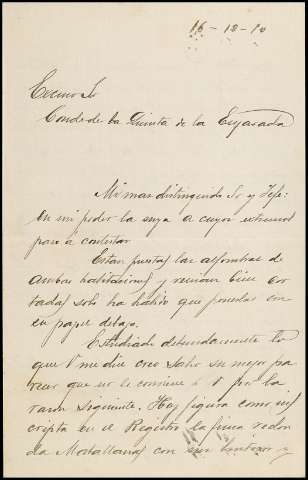 16-12-10
Excmo Sr
Conde de la Quinta de la Enjarada
Mi mas distinguido Sr y Jefe:
En mi poder la suya a cuyos
paso a contestar
Estan puestas las alfombras de
ambas habitaciones y venian bien cor
tadas solo ha habido que ponerlas con
en papel debajo.
Estudiado detenidamente lo
que V me dice creo salvo su mejor pa
recer que no le conviene á V por la
razon siguiente. Hoy figura como ins
cripta en el Registro la finca redon
da Mostallanas con sus linderos y